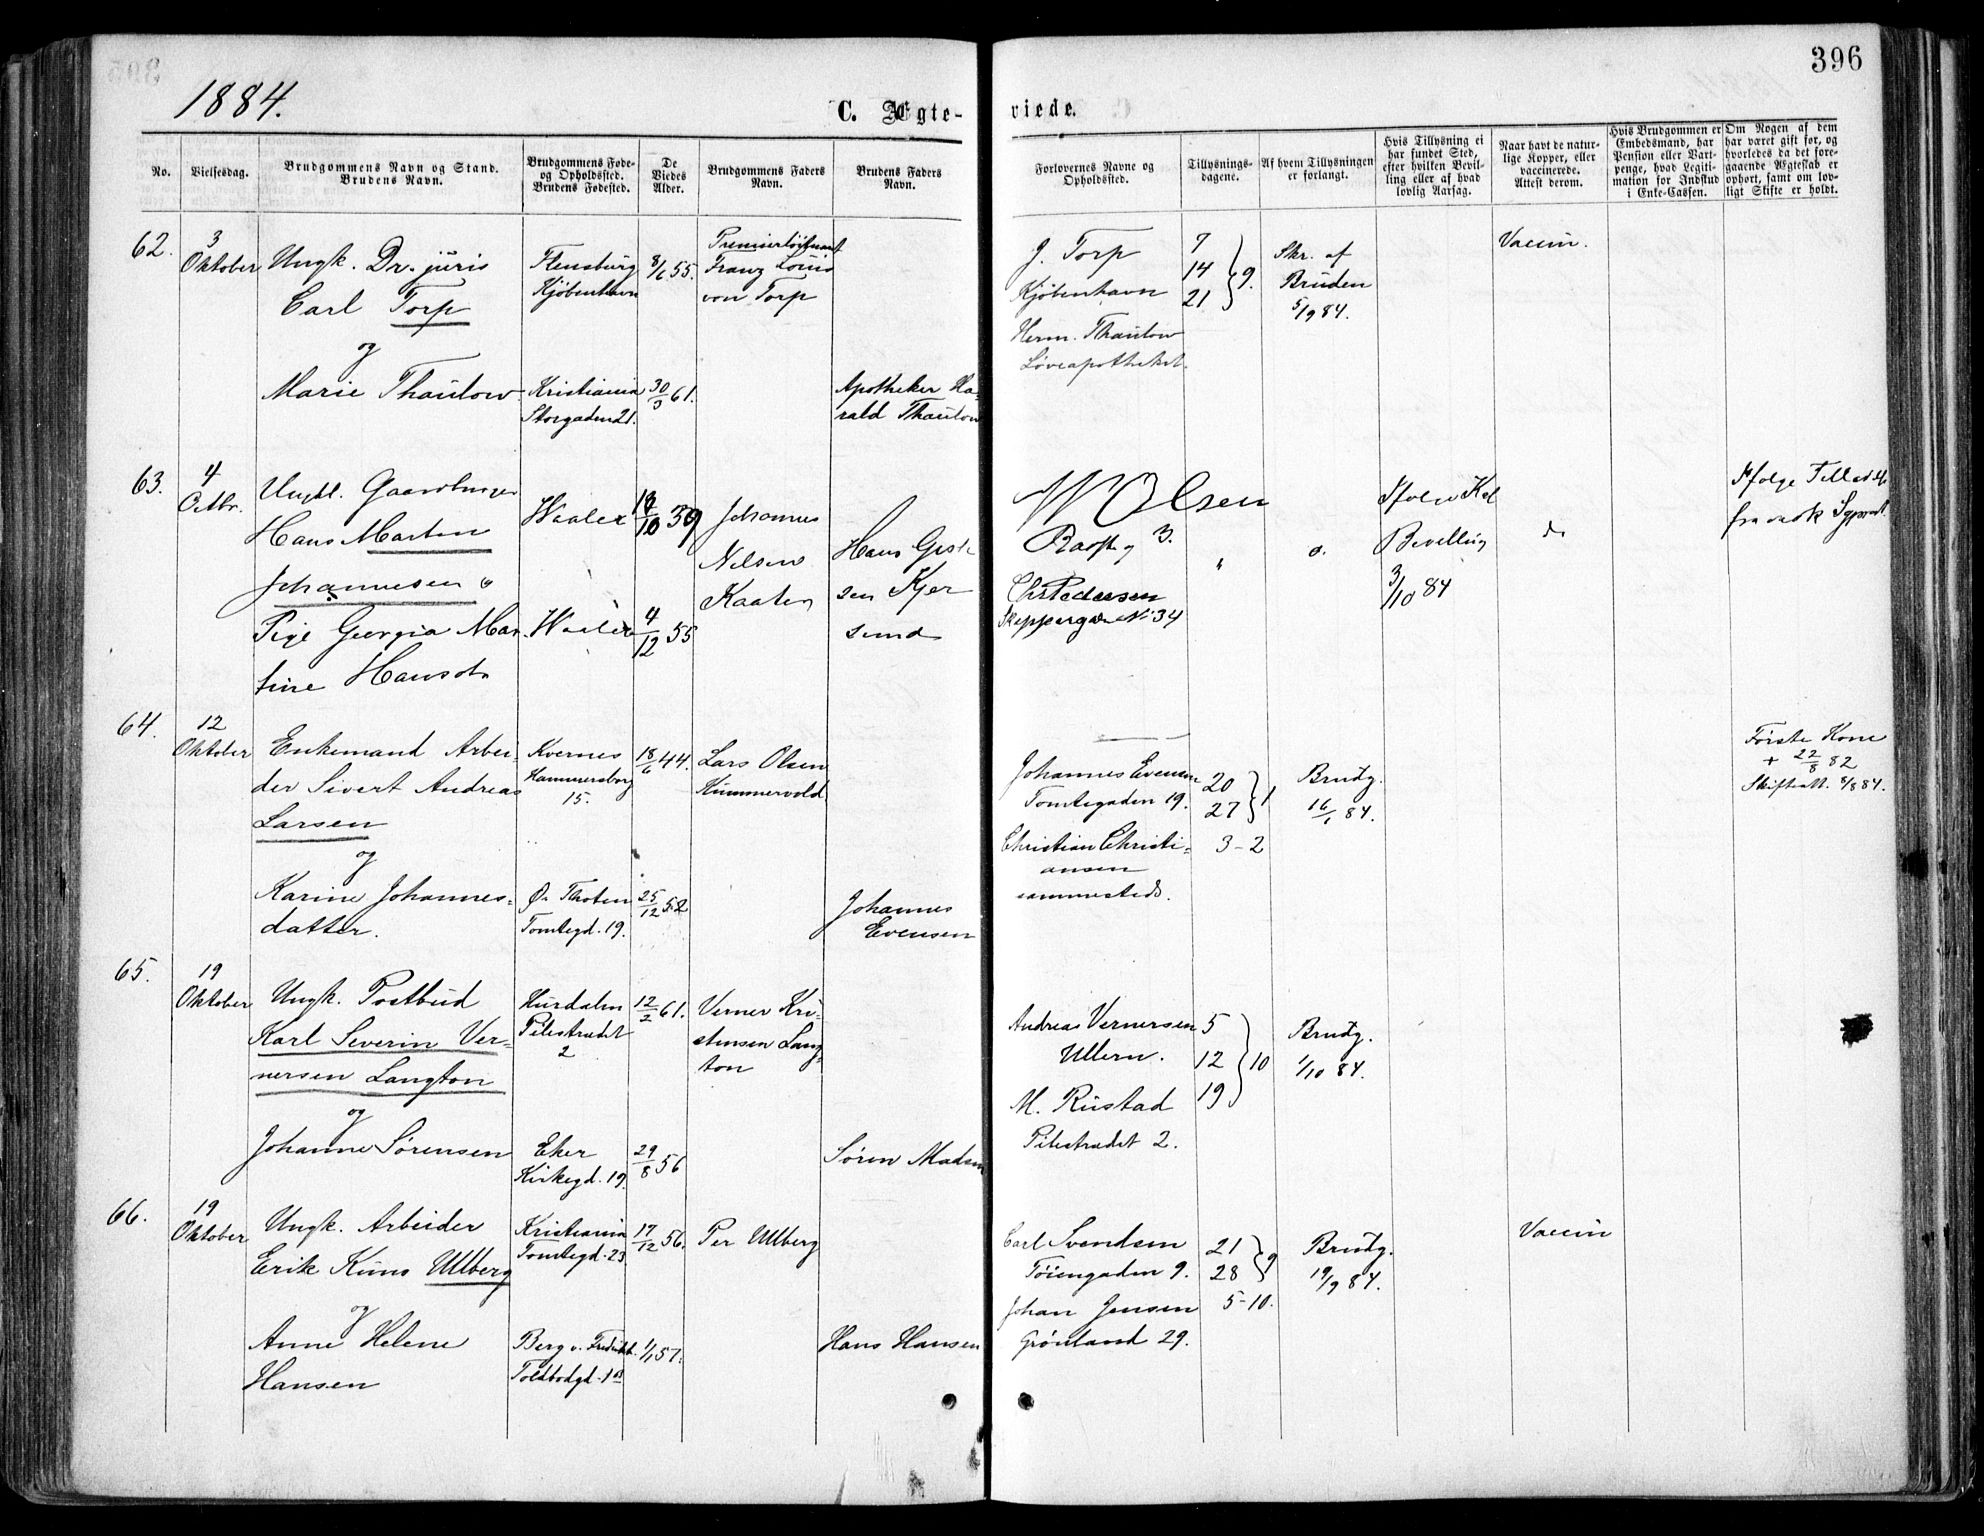 396
1884.
C. Ægte-
viede.
No.
Vielsesdag.
Brudgommens Navn og Stand.
Brudens Navn.
Brudgommens Føde-
og Opholdssted.
Brudens Fødested.
De
Viedes
Alder.
Brudgommens Faders
Navn.
Brudens Faders
Navn.
Forlovernes Navne og
Opholdssted.
Tillysnings-
dagene.
Af hvem Tillysningen
er forlangt.
Hvis Tillysning ei
har fundet Sted,
efter hvilken Bevil-
ling eller af hvad
lovlig Aarsag.
Naar havt de natur-
lige Kopper, eller
vaccinerede.
Attest derom.
Hvis Brudgommen er
Embedsmand, har
Pension eller Vart-
penge, hvad Legiti-
mation for Indskud
i Enke-Cassen.
Om Nogen af dem
har været gift før, og
hvorledes da det fore-
gaaende Ægteskab er
ophørt, samt om lov-
ligt Skifte er holdt.
62.
3
Oktober
Ungk. Dr. juris
Carl Torp
og
Marie Thaulow
Flensburg
Kjøbenhavn
Kristiania
Storgaden 21.
8/6 55.
30/3 61.
Premierløitnant
Franz Louis
von Torp
Apotheker Ha-
rald Thaulow
J. Torp
Kjøbenhavn
Herm. Thaulow
Løveapotheket.
7
14
21
9.
Skr. af
Bruden
5/9 84.
Vaccin.
63.
4
Octbr.
Ungkl.
Hans Marten
Johannesen
Pige Georgia Mar
tine Hansdt
Waaler
Waaler
10 39
4/12 55
Johannes
Nilsen
Kaaten
Hans
sen Kjer
sund
Olsen
3.
Chr Pedersen
No 34
Kgl
Bevilling
3/10 84
64.
12
Oktober
Enkemand Arbei-
der Sivert Andreas
Larsen
og
Karine Johannes-
datter.
Kvernes
Hammersborg
15.
Ø. Thoten
Tomtegd. 19.
18/6 44.
25/12 52
Lars Olsen
Kummervold
Johannes
Evensen
Johannes Evensen
Tomtegaden 19.
Christian Christi-
ansen
sammesteds.
20
27
1
3-2
Brudg.
16/1 84.
Første Kone
+ 22/8 82
Skifteatt. 8/8 84.
65.
19
Oktober
Ungk. Postbud
Karl Severin Ver-
nersen Langton
og
Johanne Sørensen
Hurdalen
Pilestrædet
2
Eker
Kirkegd. 19.
12/2 61.
29/8 56
Verner Kri-
stensen Lang-
ton
Søren Madsen
Andreas Vernersen
Ullern.
M. Rustad
Pilestrædet 2.
5
12
19
10
Brudg.
1/10 84.
66.
19
Oktober
Ungk. Arbeider
Erik Kuns Ulberg
og
Anne Helene
Hansen
Kristiania
Tomtegd. 23
Berg v. Fredriksh.
Toldbodgd.
17/12 56.
1/1 57.
Per Ulberg
Hans Hansen
Carl Svendsen
Tøiengaden 9.
Johan Jensen
Grønland 29.
21
28
9
5-10.
Brudg.
19/9 84.
Vaccin